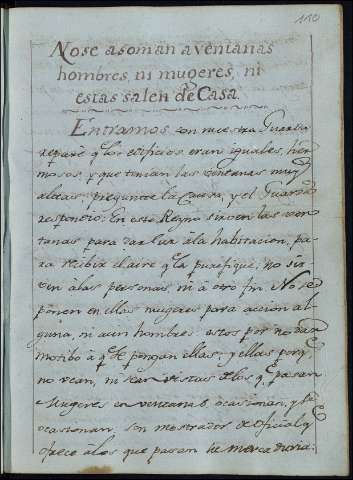 110
No se asoman a ventanas
hombres, ni mugeres, ni
estas salen de Casa.
Entramos con nuestra Guardia
reparè q.e los edificios eran iguales, her
mosos, y que tenian las ventanas muy
altas; preguntè la Causa, y el Guarda
respondiò: En este Reyno sirven las ven
tanas para dar luz à la habitacion, pa
ra recibir el aire q.e la purifique, no sir
ven à las personas, ni à otro fin. No se
ponen en ellas mugeres para accion al
guna, ni aun hombres; estos por no dar
motibo à q.e se pongan ellas; y ellas porq.e
no vean, ni sean vistas de los q.e pasan
Mugeres en ventanas, ocasionan, y se
ocasionan. Son mostrador de Oficial q.e
ofrece à los que pasan su mercaduria: